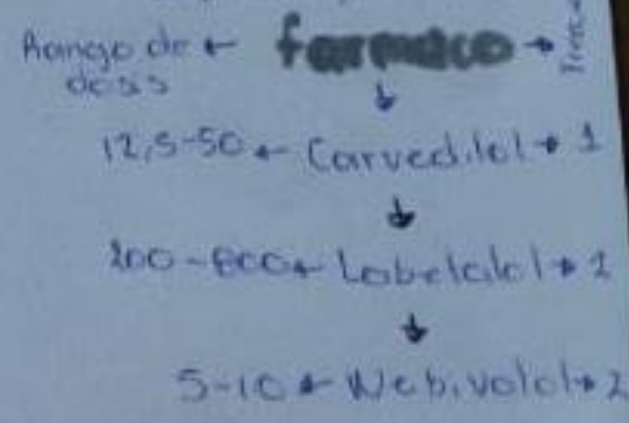 Rango de ← farmaco →
dosis
↓
12,5-50 ← Carvedilol → 1
↓
200-800 ← Labetalol → 2
↓
5-10 ← Nebivolol → 2